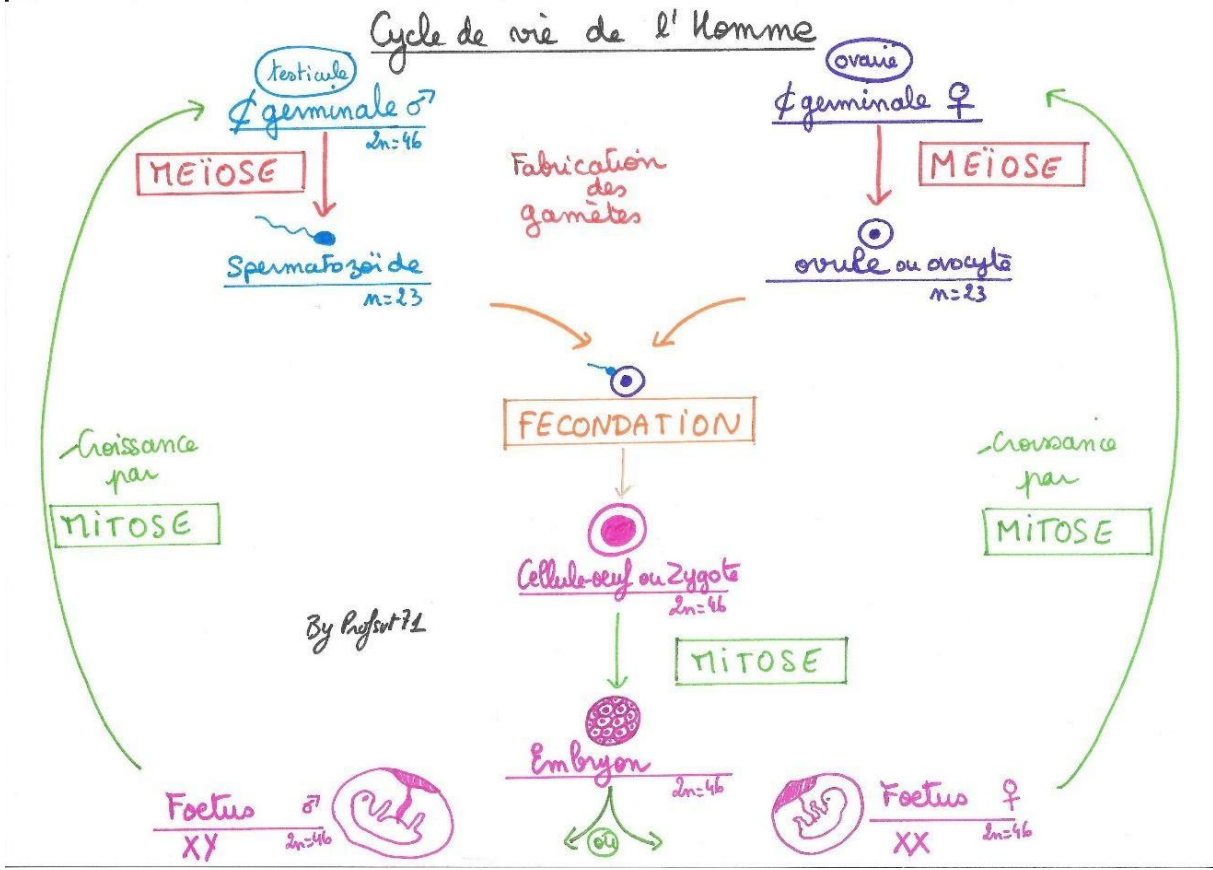 Cycle de vie de l'Homme
testicule
¢ germinale ♂
2n=46
MEÏOSE
Spermatozoïde
n=23
Fabrication
des
gamètes
ovaire
¢ germinale ♀
MEÏOSE
ovule ou ovocyte
n=23
FECONDATION
Cellule-oeuf ou Zygote
2n=46
MITOSE
Embryon
2n=46
ou
Croissance
par
MITOSE
Croissance
par
MITOSE
By Profsvt71
Foetus ♂
XY 2n=46
Foetus ♀
XX 2n=46